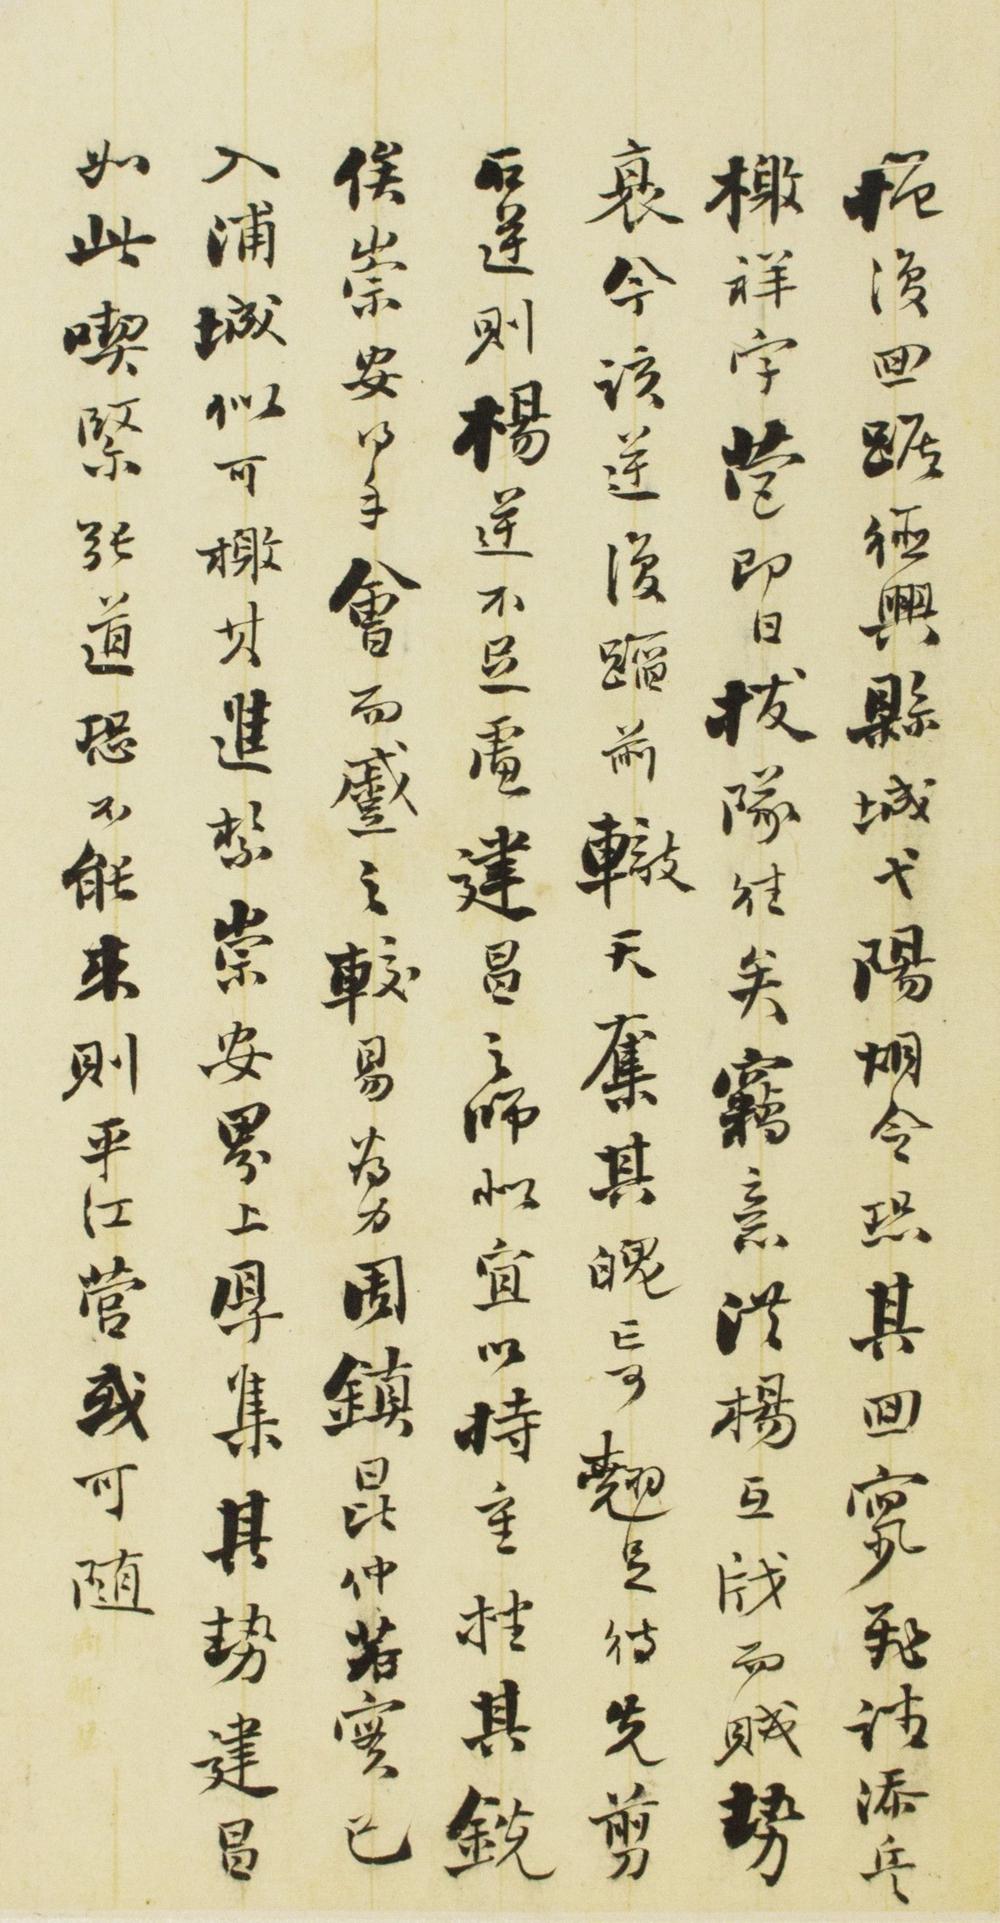 復回踞德興縣城弋陽胡令恐其回竄飛請添兵
檄祥字營即日拔隊往矣竊意洪楊互戕而賊勢
衰今該逆復蹈前轍天奪其魄亡可翹足待先剪
石逆則楊逆不足慮建昌之師似宜以時主挫其銳
俟崇安得手會而蹙之較易為力周鎮昆仲若實已
入浦城似可檄其進禁崇安界上厚集其勢建昌
如此喫緊張道恐不能來則平江營或可隨